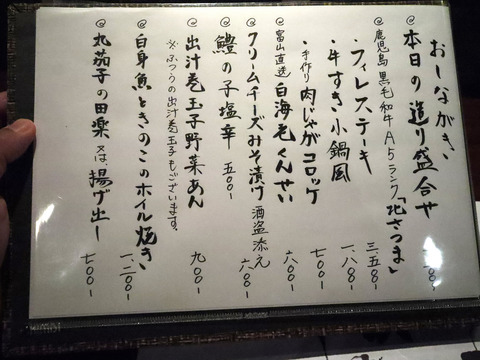 おしながき
◎本日の造り盛合せ
◎鹿児島 黒毛和牛 A5ランク「北さつま」
・フィレステーキ 三、五八〇-
・牛すき小鍋風 一、八八〇-
・手作り 肉じゃがコロッケ 七〇〇-
◎富山直送 白海老くんせい 六〇〇-
◎クリームチーズみそ漬け 酒盗添え 六八〇-
◎鱧の子塩辛 五〇〇-
◎出汁巻玉子野菜あん 九〇〇-
※ふつうの出汁巻玉子もございます。
◎白身魚ときのこのホイル焼き 一、二〇〇-
◎丸茄子の田楽 又は、揚げ出し 七〇〇-